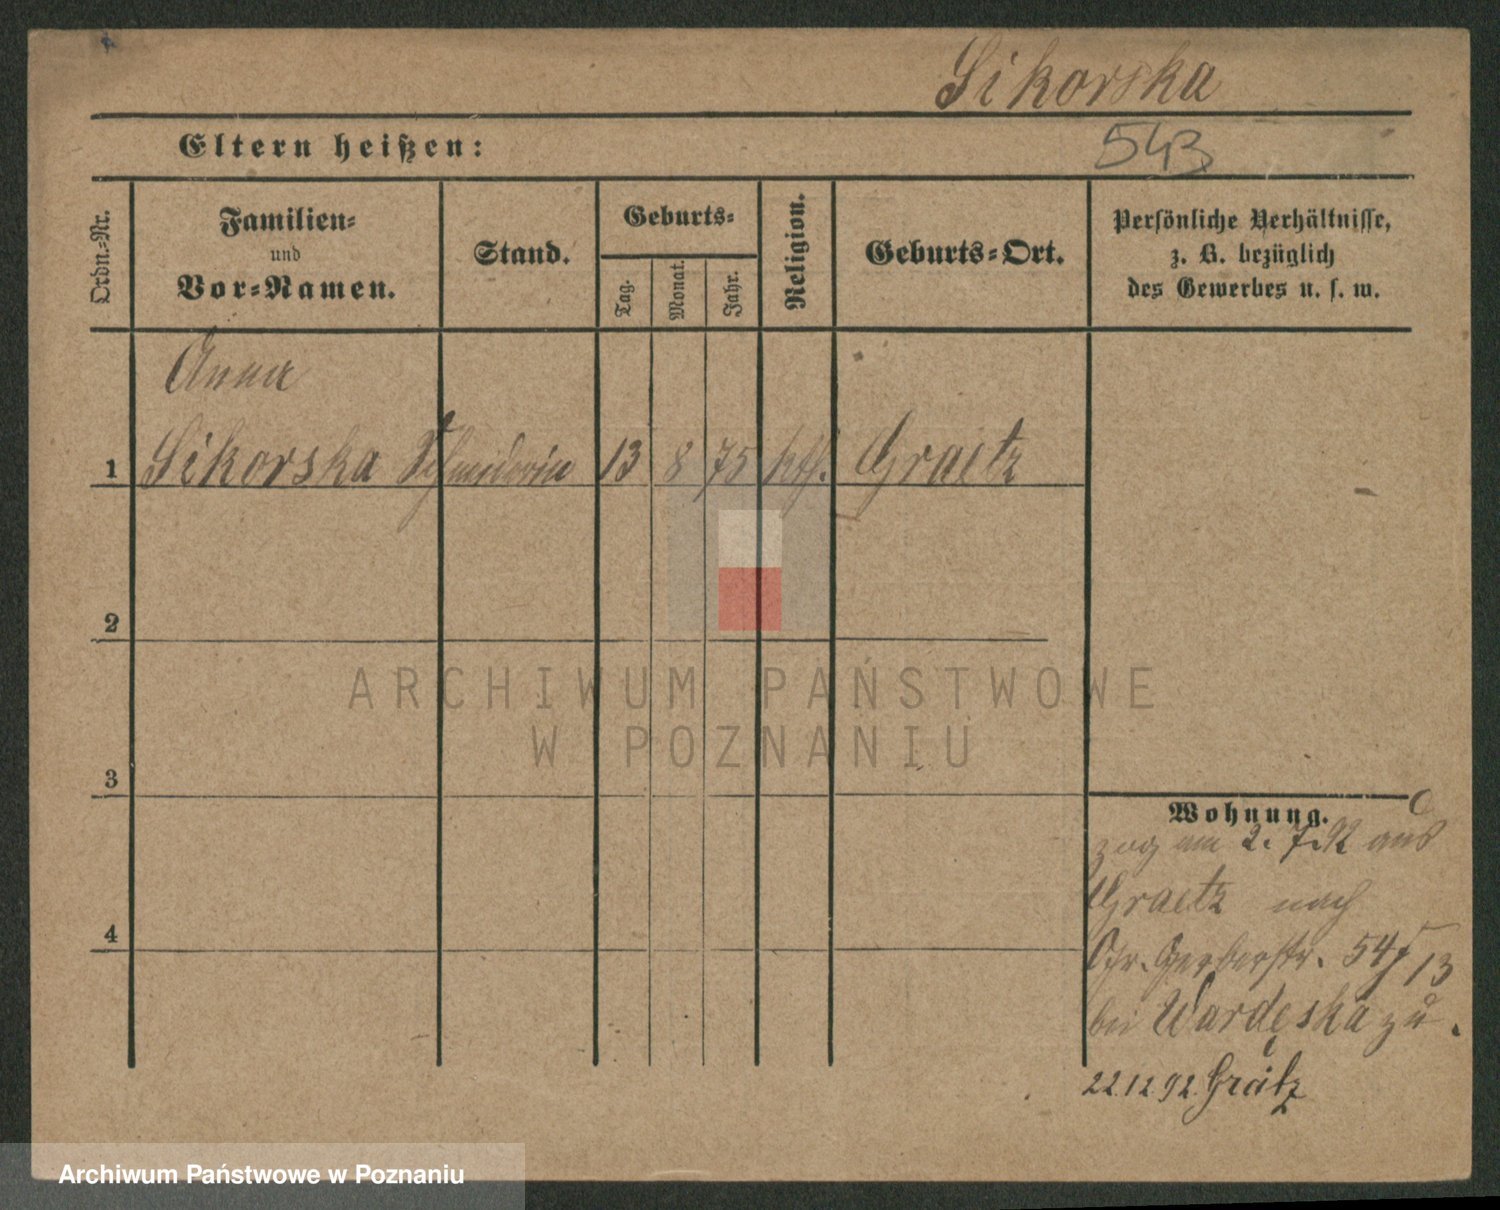 Sikorska
Eltern heißen:
543
Ordn.-Nr.
Familien-
und
Vor-Namen.
Stand.
Geburts-
Tag.
Monat.
Jahr.
Religion.
Geburts-Ort.
Persönliche Verhältnisse,
z. B. bezüglich
des Gewerbes u. s. w.
Anna
1 Sikorska Schneiderin 13 8 75 kth. Graetz
2
3
4
ARCHIWUM PAŃSTWOWE
W POZNANIU
Wohnung.
zog am 2. 7. 92 aus
Graetz nach
Gr. Gerberstr. 54 / 13
bei Wardęska zu.
22.12.92. Grätz
Archiwum Państwowe w Poznaniu